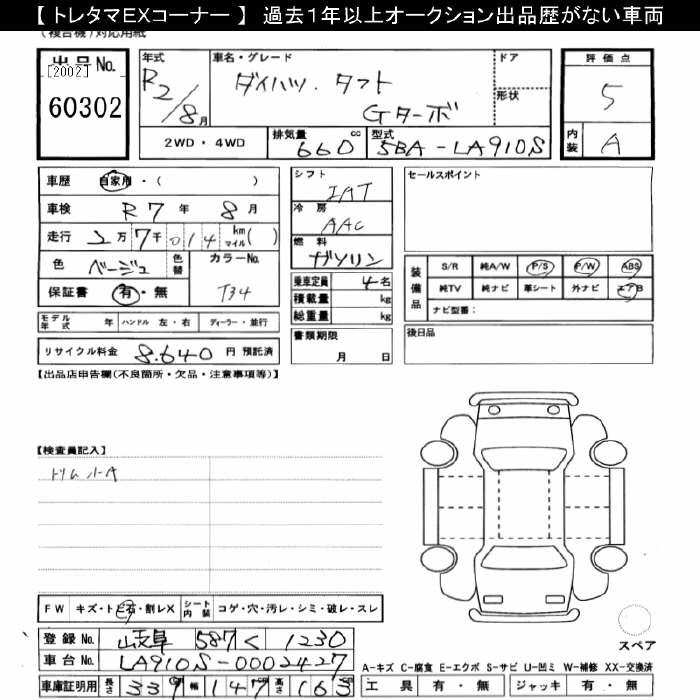 【 トレタマEXコーナー 】 過去１年以上オークション出品歴がない車両
(複合機)対応用紙
出品No.
[2002]
60302
年式
R2/8月
車名・グレード
ダイハツ. タフト
Gターボ
ドア
形状
評価点
5
内装
A
2WD・4WD
排気量
660 cc
型式
5BA-LA910S
車歴 自家用・( )
車検 R7年 8月
走行 2万7千014 km マイル( )
色 ベージュ
色替
カラーNo.
T34
保証書 有・無
シフト
IAT
冷房
AAC
燃料
ガソリン
乗車定員 4名
積載量 kg
総重量 kg
書類期限
月 日
セールスポイント
装備品
S/R 純A/W P/S P/W ABS
純TV 純ナビ 革シート 外ナビ エアB
ナビ型番：
後日品
モデル年式 年 ハンドル 左・右 ディーラー・並行
リサイクル料金 8.640 円 預託済
【出品店申告欄(不良箇所・欠品・注意事項等)】
【検査員記入】
FW キズ・トビ石・割レX
シート内装 コゲ・穴・汚レ・シミ・破レ・スレ
登録No. 岐阜 587 く 1230
車台No. LA910S-0002427
車庫証明用 長さ 339 幅 147 高さ 163
スペア
A-キズ C-腐食 E-エクボ S-サビ U-凹ミ W-補修 XX-交換済
工具 有・無 ジャッキ 有・無